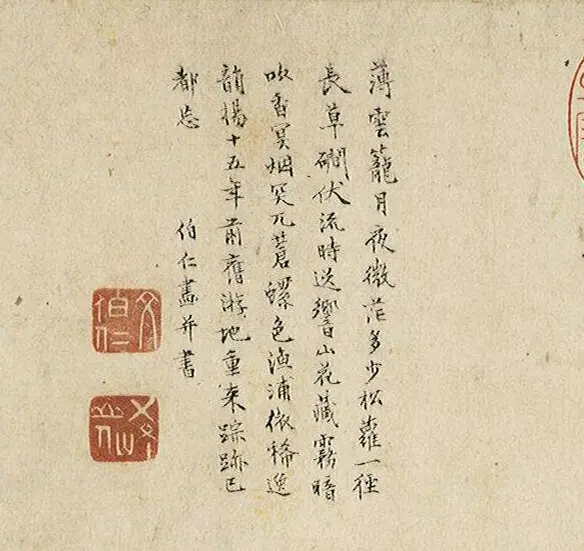 薄雲籠月夜微茫多少松蘿一徑
長草礀伏流時送響山花藏霧暗
吹香冥烟突兀蒼螺色漁浦依稀逸
韻揚十五年前舊游地重來踪跡已
都忘 伯仁畫并書
文伯仁